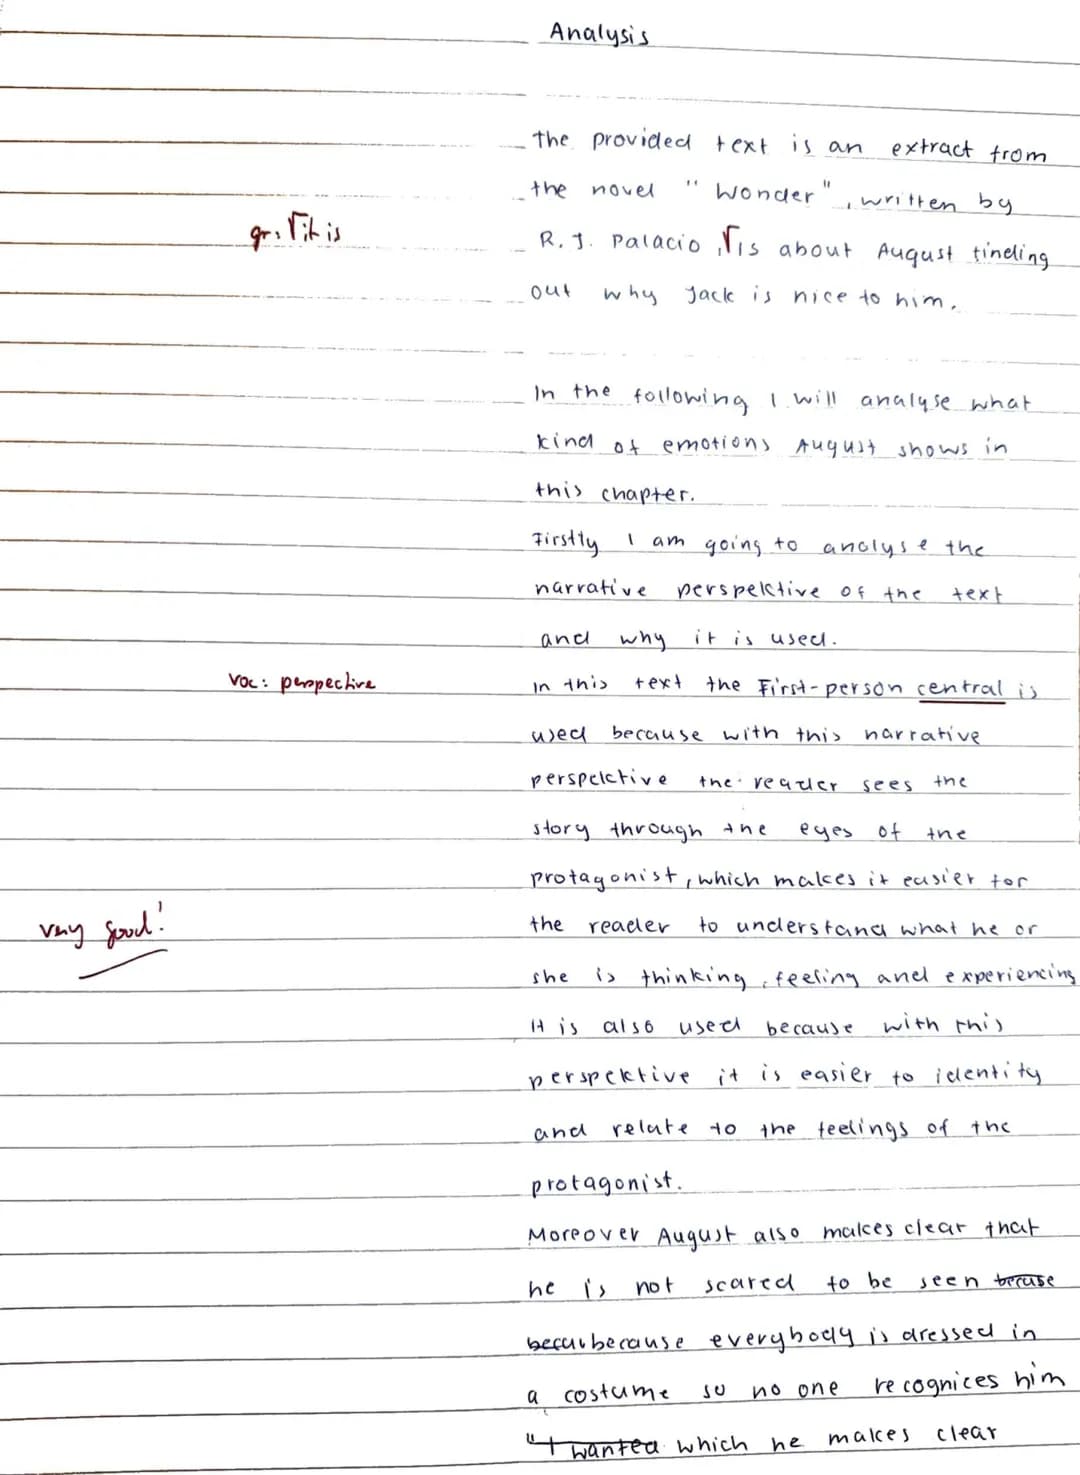 Analysis
the provided text is an extract from
the novel "Wonder", written by
gr: √it is
R.J. Palacio, √is about August finding
out why Jack is nice to him.
In the following I will analyse what
kind of emotions August shows in
this chapter.
Firstly I am going to analyse the
narrative perspektive of the text
and why it is used.
voc: perspective
In this text the First-person central is
used because with this narrative
perspektive the reader sees the
story through the eyes of the
protagonist, which makes it easier for
very good!
the reader to understand what he or
she is thinking, feeling and experiencing
It is also used because with this
perspektive it is easier to identify
and relate to the feelings of the
protagonist.
Moreover August also makes clear that
he is not scared to be seen becuse
becaubecause everybody is dressed in
a costume so no one recognices him
"I wanted which he makes clear